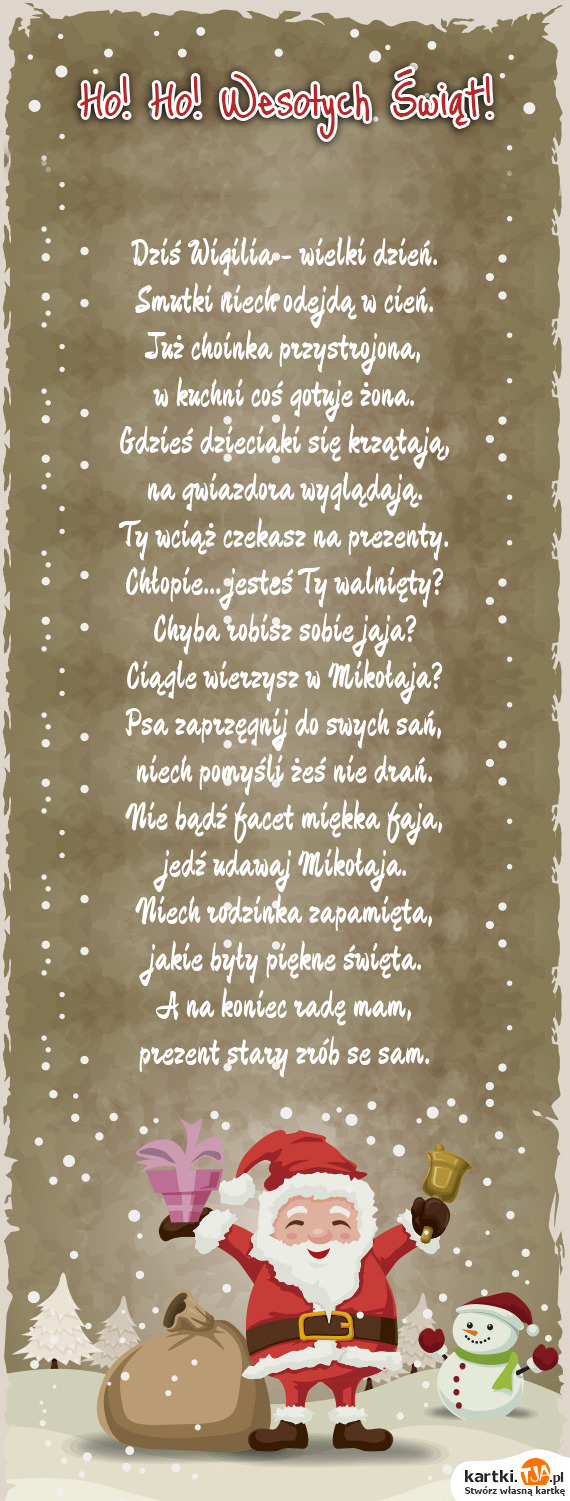 Ho! Ho! Wesołych Świąt!
Dziś Wigilia - wielki dzień.
Smutki niech odejdą w cień.
Już choinka przystrojona,
w kuchni coś gotuje żona.
Gdzieś dzieciaki się krzątają,
na gwiazdora wyglądają.
Ty wciąż czekasz na prezenty.
Chłopie...jesteś Ty walnięty?
Chyba robisz sobie jaja?
Ciągle wierzysz w Mikołaja?
Psa zaprzęgnij do swych sań,
niech pomyśli żeś nie drań.
Nie bądź facet miękka faja,
jedź udawaj Mikołaja.
Niech rodzinka zapamięta,
jakie były piękne święta.
A na koniec radę mam,
prezent stary zrób se sam.
kartki.TJA.pl
Stwórz własną kartkę